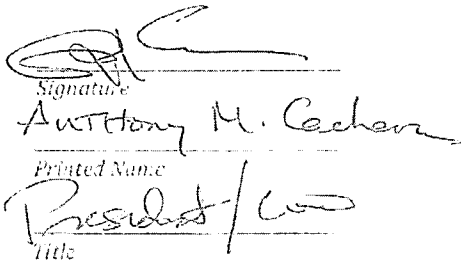 Signature
Anthony M.
Printed Name
President/
Title